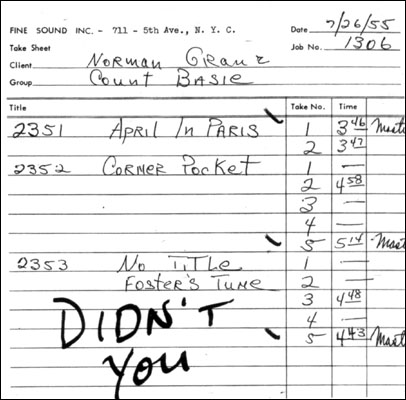 FINE SOUND INC. - 711 - 5th Ave., N. Y. C. Date 7/26/55
Take Sheet Job No. 1306
Client Norman Granz
Group Count Basie
Title Take No. Time
2351 April In Paris 1 3 46 Mast
2 3 47
2352 Corner Pocket 1 —
2 4 58
3 —
4 —
5 5 14 Mast
2353 No Title 1 —
Foster's Tune 2 —
3 4 48
4 —
5 4 43 Mast
DIDN'T
YOU